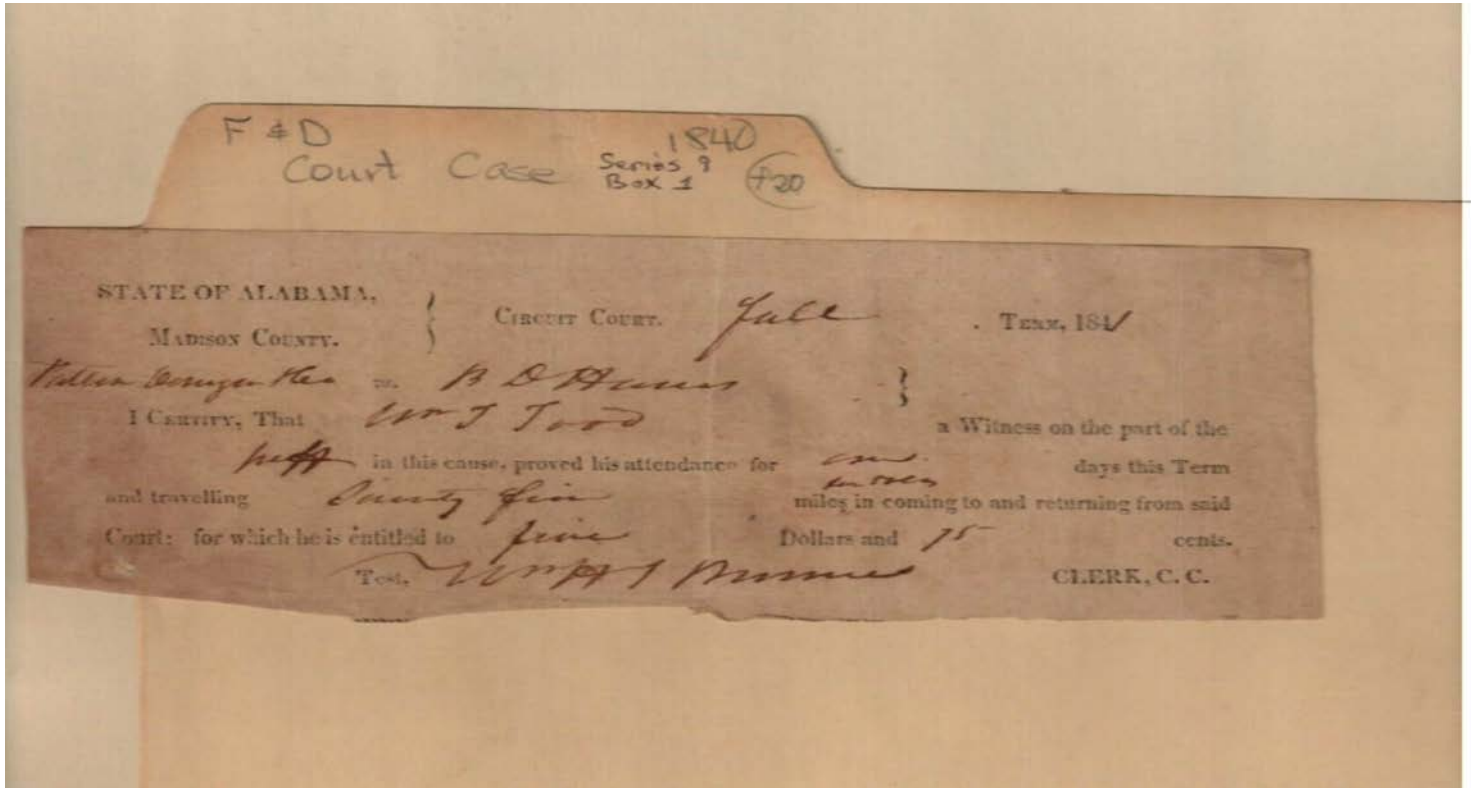 F & D 1840
Court Case Series 9
Box 1
STATE OF ALABAMA,
MADISON COUNTY.
CIRCUIT COURT. Fall TERM, 1841
vs. B D
I CERTIFY, That Wm J Todd a Witness on the part of the
in this cause, proved his attendance for days this Term
and travelling miles in coming to and returning from said
Court: for which he is entitled to five Dollars and 75 cents.
Test. Wm H CLERK, C. C.